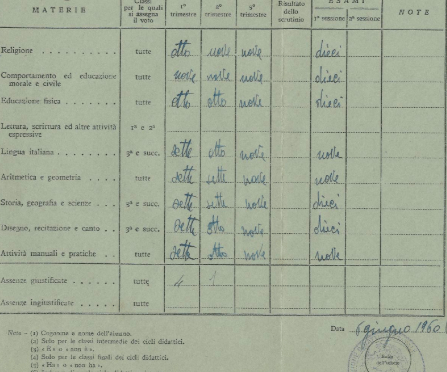 MATERIE Classi per le quali si assegna il voto 1° trimestre 2° trimestre 3° trimestre Risultato dello scrutinio ESAMI 1ª sessione 2ª sessione NOTE
Religione tutte otto nove nove dieci
Comportamento ed educazione morale e civile tutte nove nove nove dieci
Educazione fisica tutte otto otto nove dieci
Lettura, scrittura ed altre attività espressive 1ª e 2ª
Lingua italiana 3ª e succ. sette otto nove nove
Aritmetica e geometria tutte sette sette nove nove
Storia, geografia e scienze 3ª e succ. sette sette nove dieci
Disegno, recitazione e canto 3ª e succ. sette otto nove dieci
Attività manuali e pratiche tutte sette otto nove nove
Assenze giustificate tutte
Assenze ingiustificate tutte
Data 6 giugno 1960
Note - (1) Cognome e nome dell'alunno.
(2) Solo per le classi intermedie dei cicli didattici.
(3) «Ha» o «non ha».
(4) Solo per le classi finali dei cicli didattici.
(5) «Ha» o «non ha».